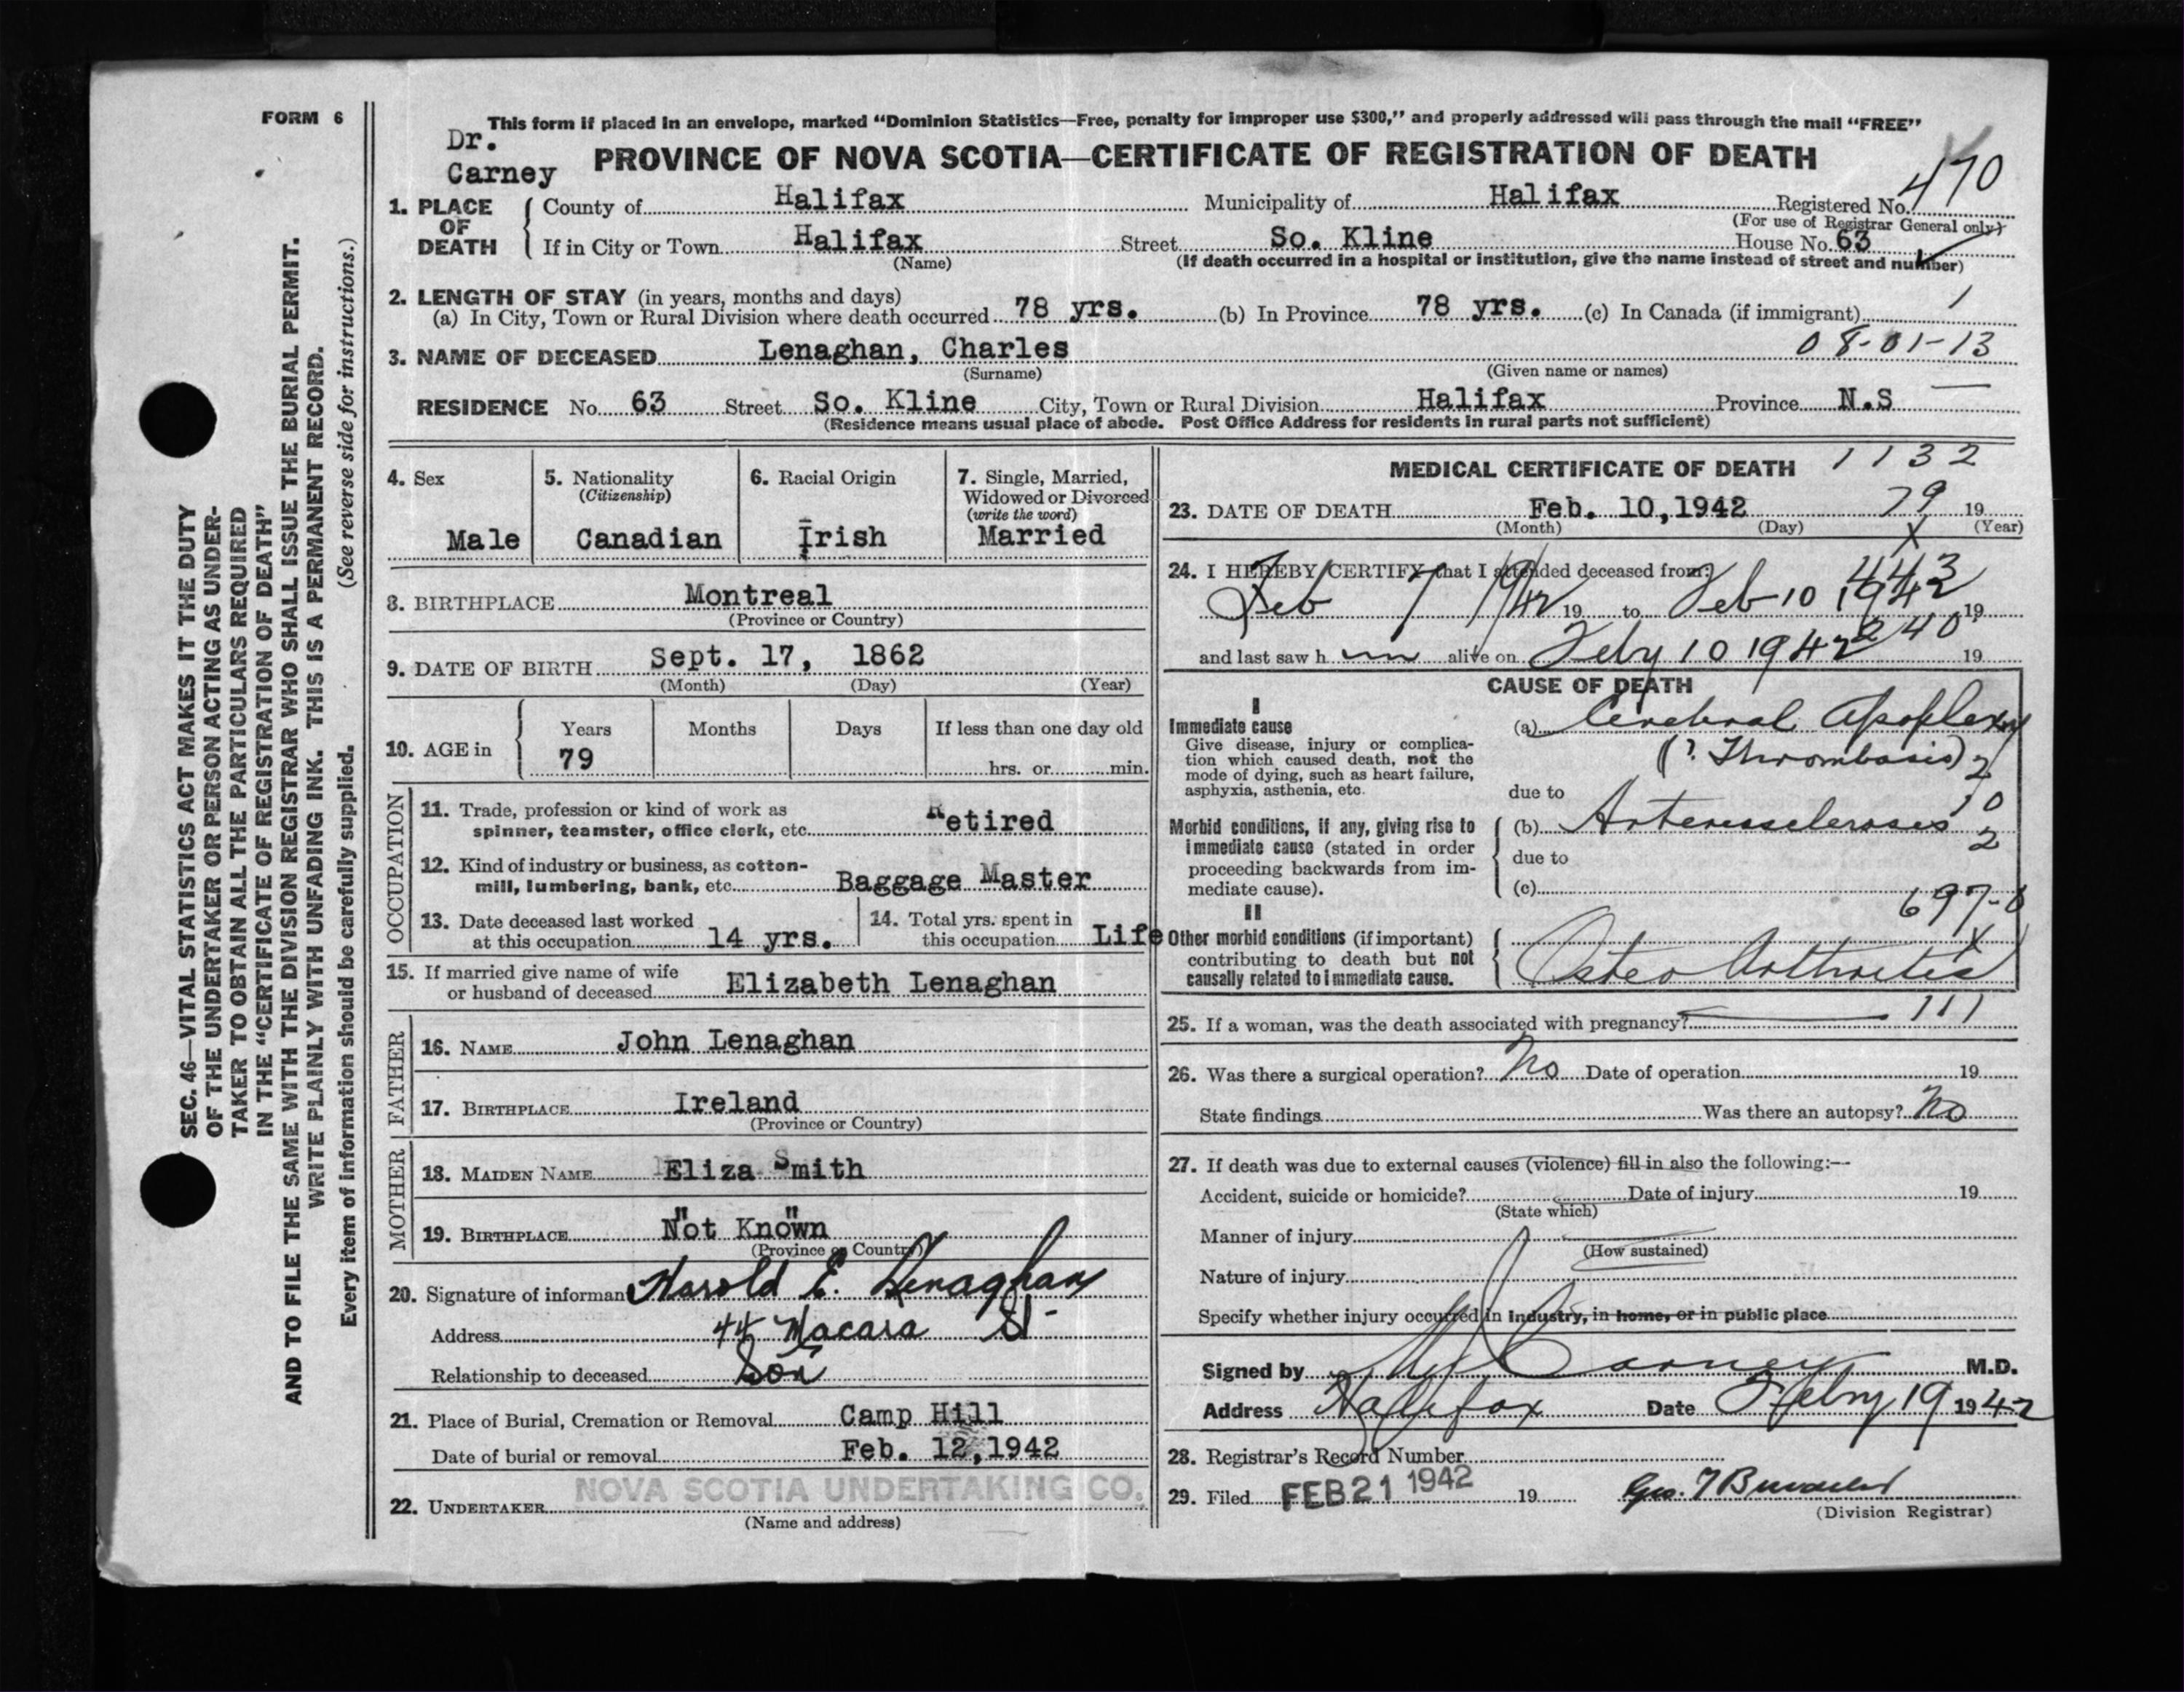 FORM 6
This form if placed in an envelope, marked "Dominion Statistics—Free, penalty for improper use $300," and properly addressed will pass through the mail "FREE"
Dr.
Carney
PROVINCE OF NOVA SCOTIA—CERTIFICATE OF REGISTRATION OF DEATH
470
1. PLACE OF DEATH
County of Halifax Municipality of Halifax Registered No.
(For use of Registrar General only)
If in City or Town Halifax Street So. Kline House No. 63
(Name) (If death occurred in a hospital or institution, give the name instead of street and number)
2. LENGTH OF STAY (in years, months and days)
(a) In City, Town or Rural Division where death occurred 78 yrs. (b) In Province 78 yrs. (c) In Canada (if immigrant) 1
3. NAME OF DECEASED Lenaghan, Charles 08-01-13
(Surname) (Given name or names)
RESIDENCE No. 63 Street So. Kline City, Town or Rural Division Halifax Province N.S
(Residence means usual place of abode. Post Office Address for residents in rural parts not sufficient)
4. Sex
Male
5. Nationality
(Citizenship)
Canadian
6. Racial Origin
Irish
7. Single, Married,
Widowed or Divorced
(write the word)
Married
8. BIRTHPLACE Montreal
(Province or Country)
9. DATE OF BIRTH Sept. 17, 1862
(Month) (Day) (Year)
10. AGE in
Years Months Days If less than one day old
79 hrs. or min.
OCCUPATION
11. Trade, profession or kind of work as
spinner, teamster, office clerk, etc. Retired
12. Kind of industry or business, as cotton-
mill, lumbering, bank, etc. Baggage Master
13. Date deceased last worked
at this occupation 14 yrs.
14. Total yrs. spent in
this occupation Life
15. If married give name of wife
or husband of deceased Elizabeth Lenaghan
FATHER
16. NAME John Lenaghan
17. BIRTHPLACE Ireland
(Province or Country)
MOTHER
18. MAIDEN NAME Eliza Smith
19. BIRTHPLACE "Not Known"
(Province or Country)
20. Signature of informant Harold E. Lenaghan
Address 44 Macara St
Relationship to deceased Son
21. Place of Burial, Cremation or Removal Camp Hill
Date of burial or removal Feb. 12, 1942
22. UNDERTAKER NOVA SCOTIA UNDERTAKING CO.
(Name and address)
MEDICAL CERTIFICATE OF DEATH 1132
23. DATE OF DEATH Feb. 10, 1942 79 19
(Month) (Day) (Year)
X
24. I HEREBY CERTIFY that I attended deceased from:
443
Feb 7 1942 19 to Feb 10 1942 19
240
and last saw h im alive on Feby 10 1942 19
CAUSE OF DEATH
I
Immediate cause
Give disease, injury or complica-
tion which caused death, not the
mode of dying, such as heart failure,
asphyxia, asthenia, etc.
(a) Cerebral Apoplexy
(? Thrombosis) 2
due to
10
Morbid conditions, if any, giving rise to
immediate cause (stated in order
proceeding backwards from im-
mediate cause).
(b) Arteriosclerosis
2
due to
(c)
II
Other morbid conditions (if important)
contributing to death but not
causally related to immediate cause.
X
Osteo Arthritis
25. If a woman, was the death associated with pregnancy? 111
26. Was there a surgical operation? No Date of operation 19
State findings Was there an autopsy? No
27. If death was due to external causes (violence) fill in also the following:—
Accident, suicide or homicide? Date of injury 19
(State which)
Manner of injury
(How sustained)
Nature of injury
Specify whether injury occurred in Industry, in home, or in public place
Signed by Carney M.D.
Address Halifax Date Feby 19 1942
28. Registrar's Record Number
29. Filed FEB 21 1942 19
(Division Registrar)
SEC. 46—VITAL STATISTICS ACT MAKES IT THE DUTY
OF THE UNDERTAKER OR PERSON ACTING AS UNDER-
TAKER TO OBTAIN ALL THE PARTICULARS REQUIRED
IN THE "CERTIFICATE OF REGISTRATION OF DEATH"
AND TO FILE THE SAME WITH THE DIVISION REGISTRAR WHO SHALL ISSUE THE BURIAL PERMIT.
WRITE PLAINLY WITH UNFADING INK. THIS IS A PERMANENT RECORD.
Every item of information should be carefully supplied. (See reverse side for instructions.)